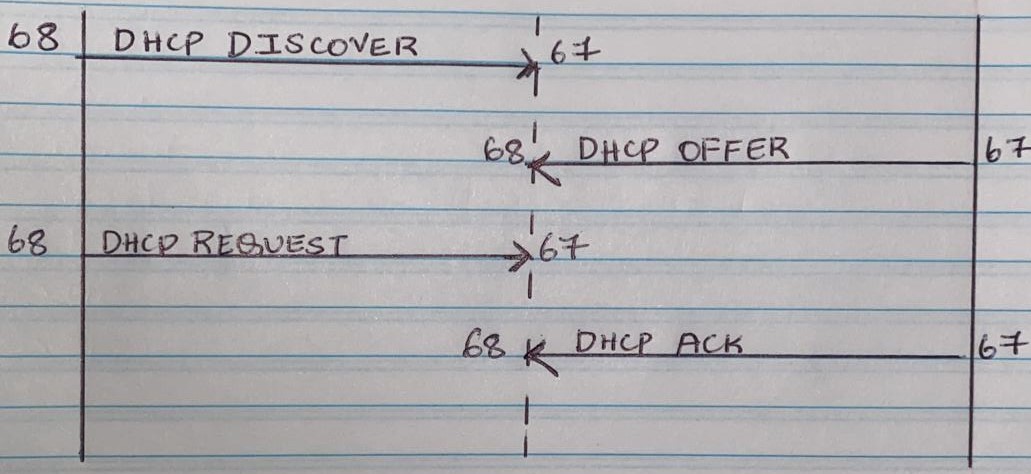 68 DHCP DISCOVER 67
68 DHCP OFFER 67
68 DHCP REQUEST 67
68 DHCP ACK 67